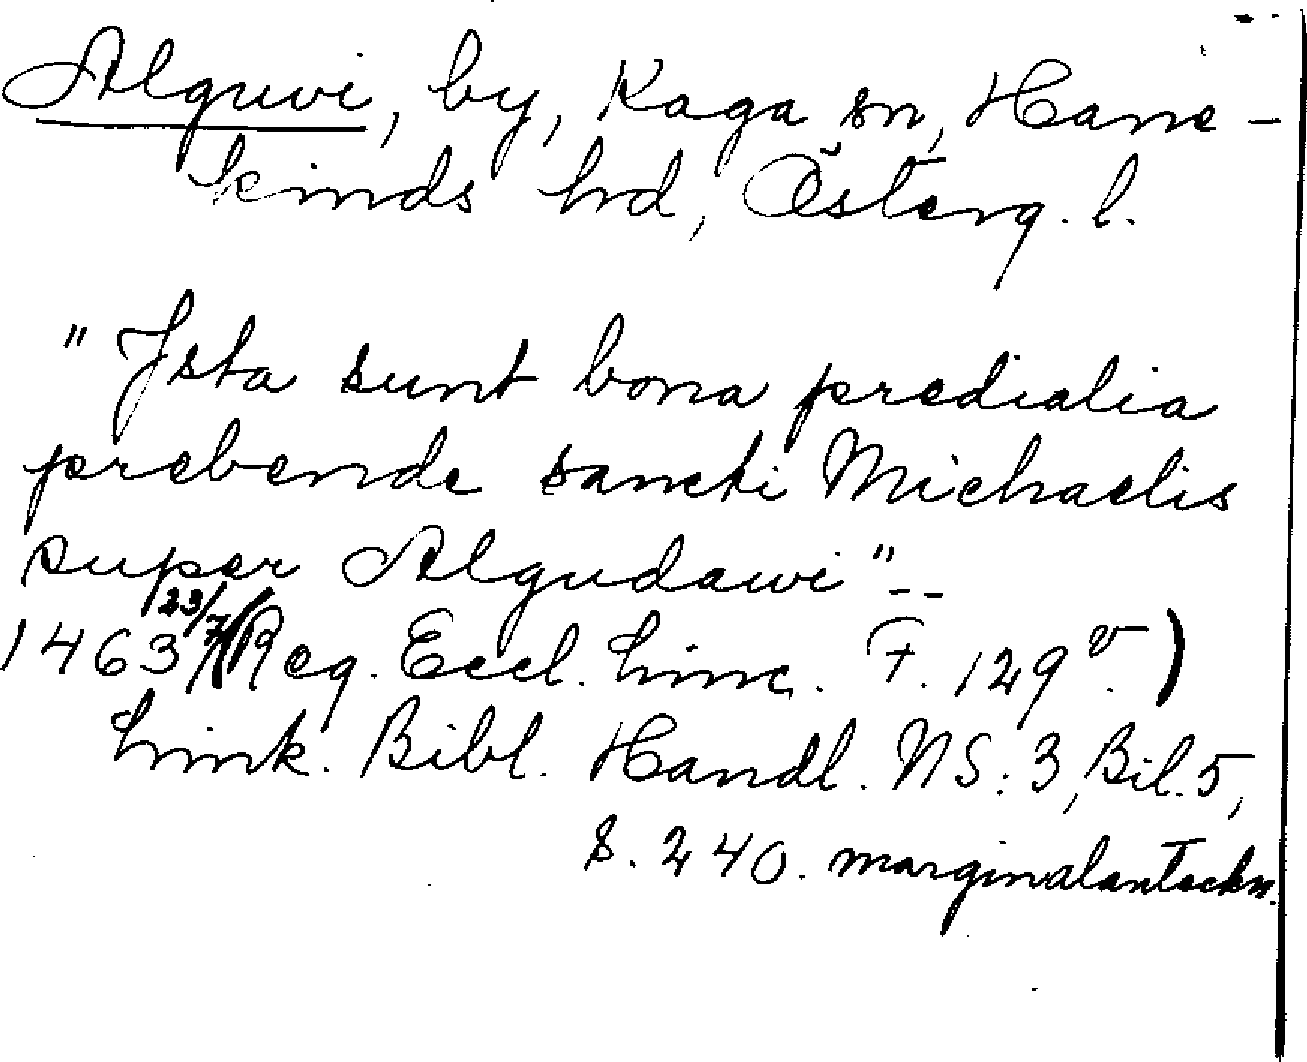 Alguvi, by, Kaga sn, Hane-
kinds hd, Österg. l.
"Ista sunt bona predialia
prebende sancti Michaelis
super Algudawi"--
1463 23/7 (Reg. Eccl. Linc. F. 129 v.)
Link. Bibl. Handl. NS: 3, Bil. 5,
S. 240. marginalanteckn.